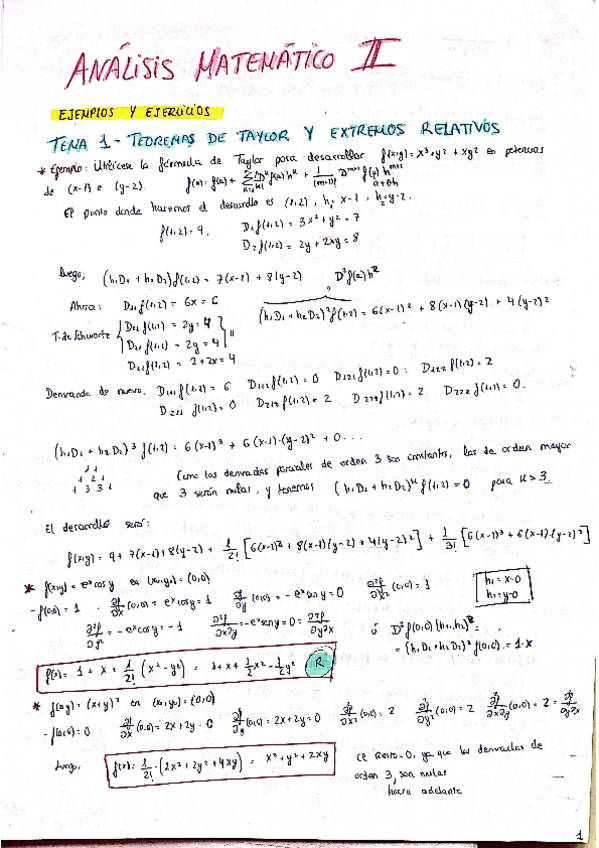 ANÁLISIS MATEMÁTICO II
EJEMPLOS Y EJERCICIOS
TEMA 1 - TEOREMAS DE TAYLOR Y EXTREMOS RELATIVOS
* Ejemplo: Utilícese la fórmula de Taylor para desarrollar f(x,y) = x³+y²+xy² en potencias
de (x-1) e (y-2).
El punto donde hacemos el desarrollo es (1,2), h₁ = x-1, h₂ = y-2.
f(1,2) = 9. D₁f(1,2) = 3x²+y² = 7
D₂f(1,2) = 2y+2xy = 8
Luego; (h₁D₁ + h₂D₂)f(1,2) = 7(x-1) + 8(y-2) D²f(a)h²
Ahora: D₁₁f(1,2) = 6x = 6 (h₁D₁ + h₂D₂)²f(1,2) = 6(x-1)² + 8(x-1)(y-2) + 4(y-2)²
T. de Schwartz D₁₂f(1,2) = 2y = 4
D₂₁f(1,2) = 2y = 4
D₂₂f(1,2) = 2+2x = 4
Derivando de nuevo: D₁₁₁f(1,2) = 6 D₁₁₂f(1,2) = 0 D₁₂₁f(1,2) = 0; D₁₂₂f(1,2) = 2
D₂₁₁f(1,2) = 0 D₂₁₂f(1,2) = 2 D₂₂₁f(1,2) = 2 D₂₂₂f(1,2) = 0.
(h₁D₁ + h₂D₂)³f(1,2) = 6(x-1)³ + 6(x-1)·(y-2)² + 0...
1 1
1 2 1
1 3 3 1
Como las derivadas parciales de orden 3 son constantes, las de orden mayor
que 3 serán nulas, y tenemos (h₁D₁ + h₂D₂)ᵏf(1,2) = 0 para k > 3.
El desarrollo será:
f(x,y) = 9 + 7(x-1) + 8(y-2) + 1/2! [6(x-1)² + 8(x-1)(y-2) + 4(y-2)²] + 1/3! [6(x-1)³ + 6(x-1)(y-2)²]
* f(x,y) = eˣcosy en (x₀,y₀) = (0,0)
- f(0,0) = 1 ∂f/∂x (0,0) = eˣcosy = 1 ∂f/∂y (0,0) = -eˣseny = 0 ∂²f/∂x² (0,0) = 1
h₁ = x-0
h₂ = y-0
∂²f/∂y² = -eˣcosy = -1 ∂²f/∂x∂y = -eˣseny = 0 = ∂²f/∂y∂x
D²f(0,0)(h₁,h₂)² =
= (h₁D₁ + h₂D₂)²f(0,0) = 1·x
f(x) = 1 + x + 1/2! (x² - y²) = 1 + x + 1/2 x² - 1/2 y² R
* f(x,y) = (x+y)² en (x₀,y₀) = (0,0)
- f(0,0) = 0 ∂f/∂x (0,0) = 2x+2y = 0 ∂f/∂y (0,0) = 2x+2y = 0 ∂²f/∂x² (0,0) = 2 ∂²f/∂y² (0,0) = 2 ∂²f/∂x∂y (0,0) = 2 = ∂²f/∂y∂x
Luego, f(x) = 1/2! · (2x² + 2y² + 4xy) = x² + y² + 2xy
El Resto = 0, ya que las derivadas de
orden 3, son nulas
hacia adelante
1